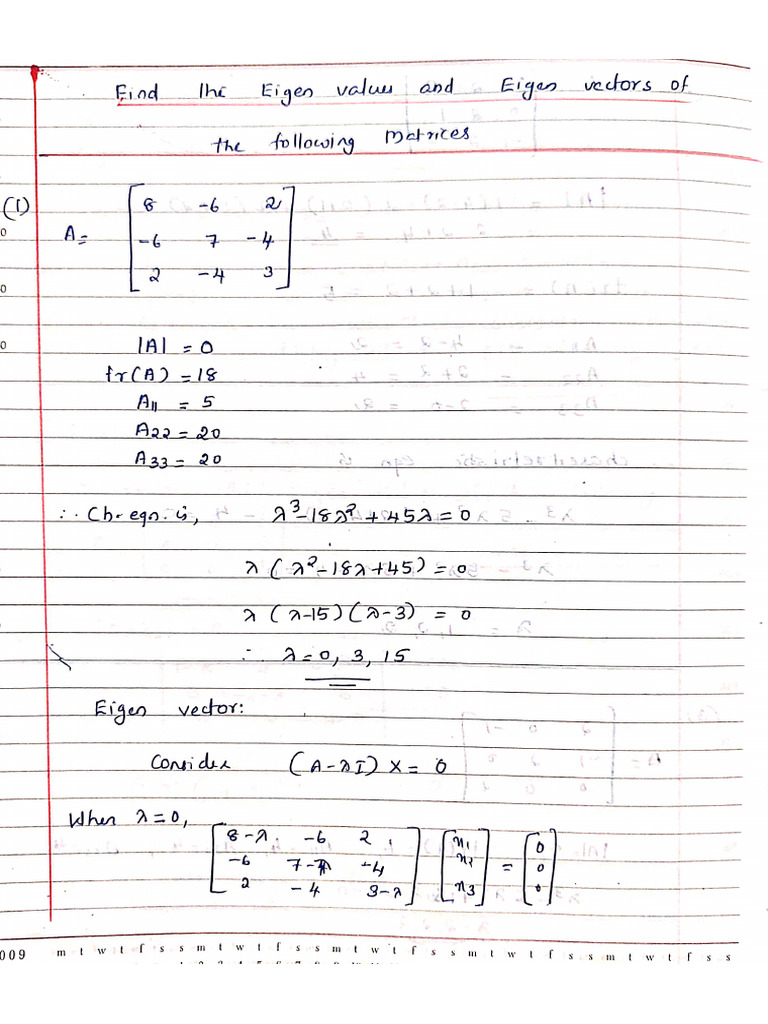 Find the Eigen values and Eigen vectors of
the following Matrices
(1)
A = [ 8 -6 2
-6 7 -4
2 -4 3 ]
|A| = 0
tr(A) = 18
A₁₁ = 5
A₂₂ = 20
A₃₃ = 20
∴ Ch. eqn. is, λ³-18λ²+45λ=0
λ (λ²-18λ+45) = 0
λ (λ-15)(λ-3) = 0
∴ λ=0, 3, 15
Eigen vector:
Consider (A-λI) X = 0
When λ=0,
[ 8-λ -6 2 ] [ x₁ ] = [ 0 ]
[ -6 7-λ -4 ] [ x₂ ] [ 0 ]
[ 2 -4 3-λ ] [ x₃ ] [ 0 ]
009 m t w t f s s m t w t f s s m t w t f s s m t w t f s s m t w t f s s